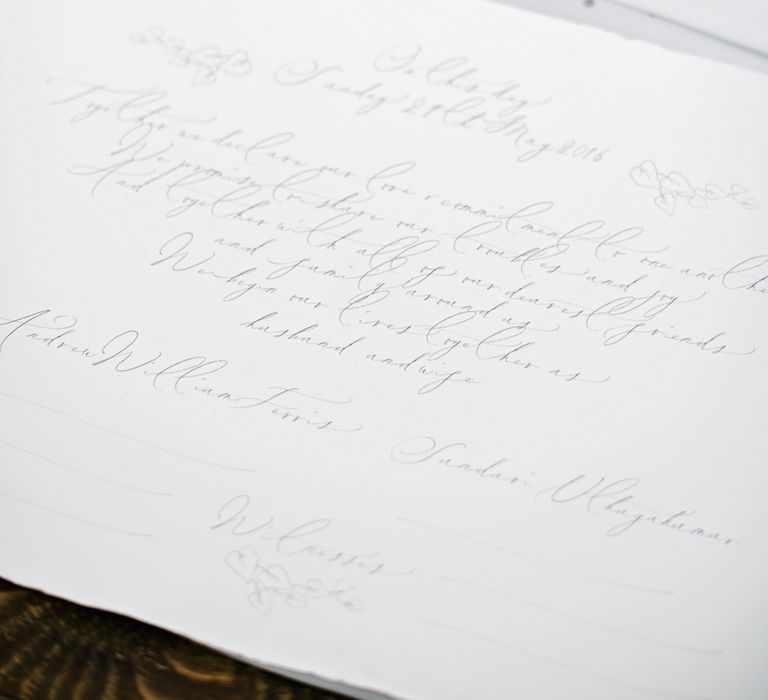 On this day
Sunday 29th May 2016
Together we declare our love & commitment to one another
We promise to share our troubles and joy
And together with all of our dearest friends
and family around us
We begin our lives together as
husband and wife
Andrew William Ferris
Sundari Ulhayakumar
Witnesses